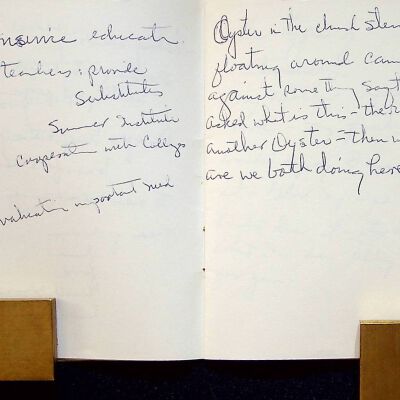 educatn
teachers: provide
Substitutes
Summer Institute
Cooperate with Colleges
important need
Oyster in the church stew
floating around came
against something say
asked what is this – the
another Oyster – then w
are we both doing here